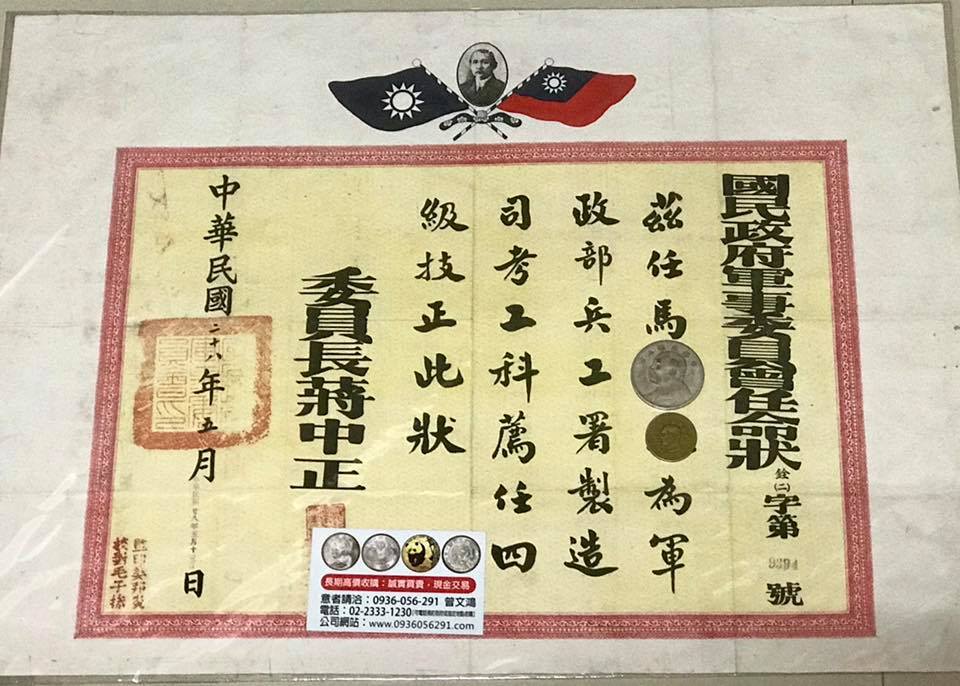 國民政府軍事委員會任命狀
銓(二)字第9394號
茲任馬 為軍
政部兵工署製造
司考工科薦任四
級技正此狀
委員長蔣中正
中華民國二十八年五月 日
長期高價收購：誠實買賣，現金交易
意者請洽：0936-056-291 曾文鴻
電話：02-2333-1230
公司網站：www.0936056291.com